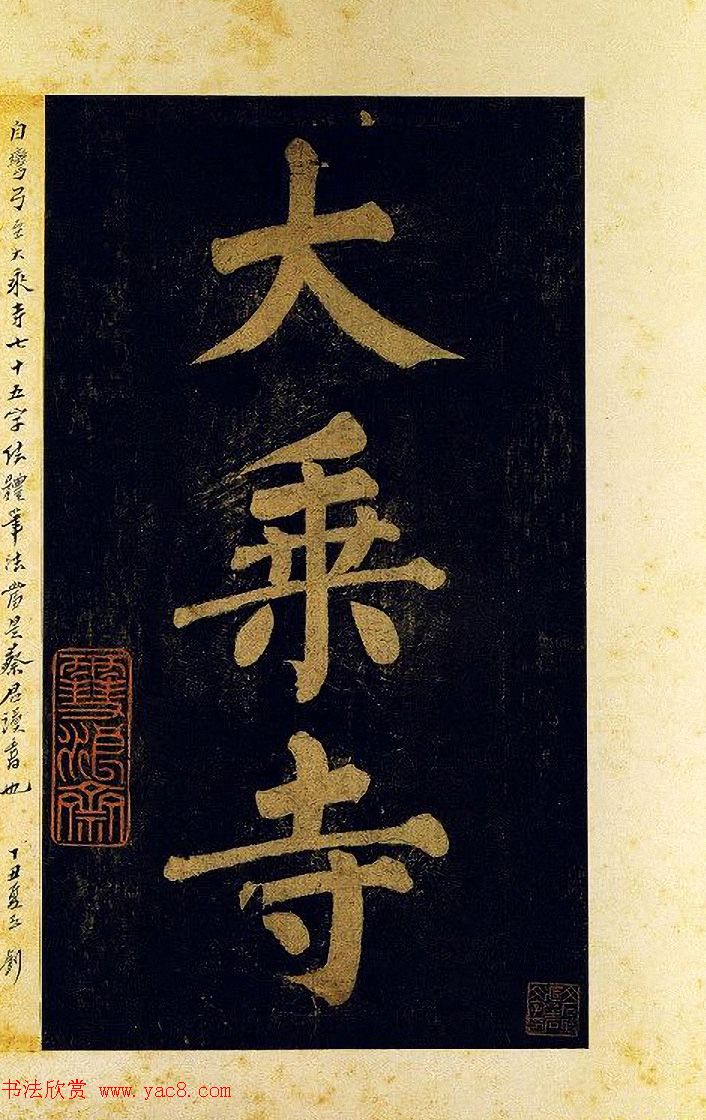 大乘寺
自彎弓至大乘寺七十五字結體筆法當是蔡君謨書也 丁丑夏五
书法欣赏 www.yac8.com